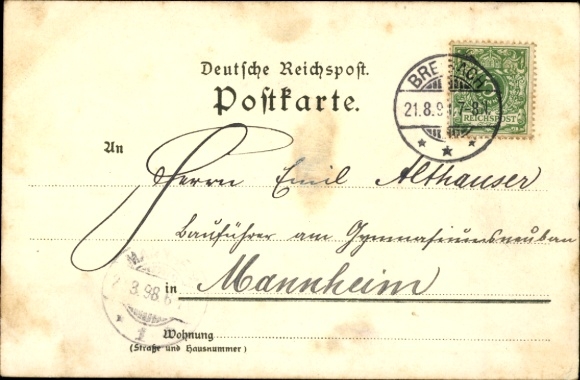 Deutsche Reichspost.
Postkarte.
21.8.9
7-8
REICHSPOST
An
Herrn Emil Althauser
Bauführer am Gymnasiumsneubau
in Mannheim
8.98.
1
Wohnung
(Straße und Hausnummer)